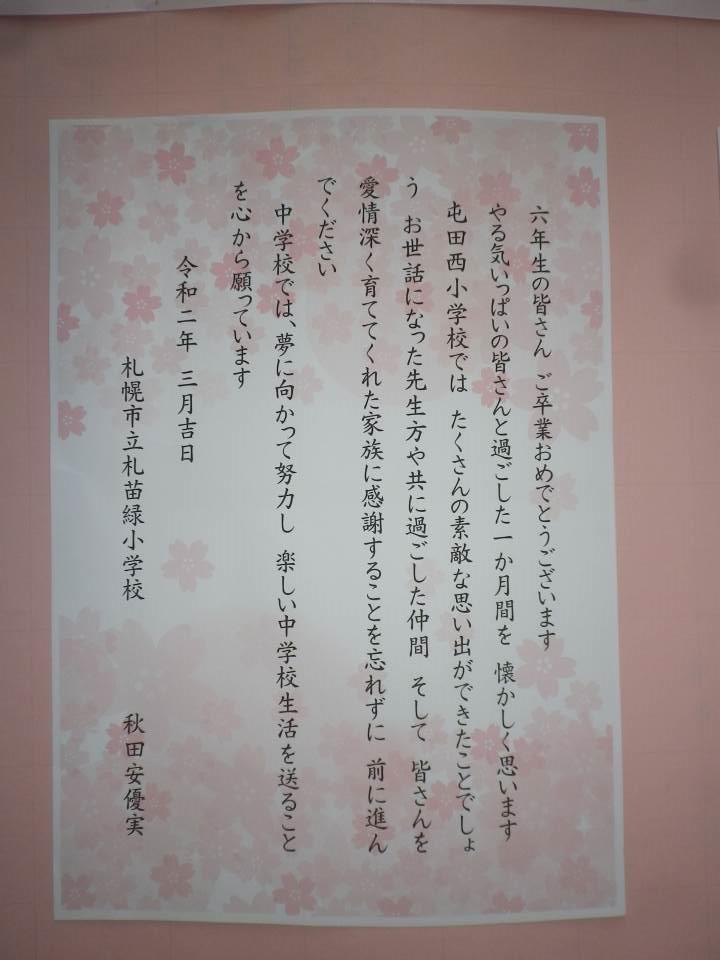 六年生の皆さん　ご卒業おめでとうございます
やる気いっぱいの皆さんと過ごした一か月間を　懐かしく思います
屯田西小学校では　たくさんの素敵な思い出ができたことでしょ
う　お世話になった先生方や共に過ごした仲間　そして　皆さんを
愛情深く育ててくれた家族に感謝することを忘れずに　前に進ん
でください
中学校では、夢に向かって努力し　楽しい中学校生活を送ること
を心から願っています
令和二年　三月吉日
札幌市立札苗緑小学校　秋田安優実